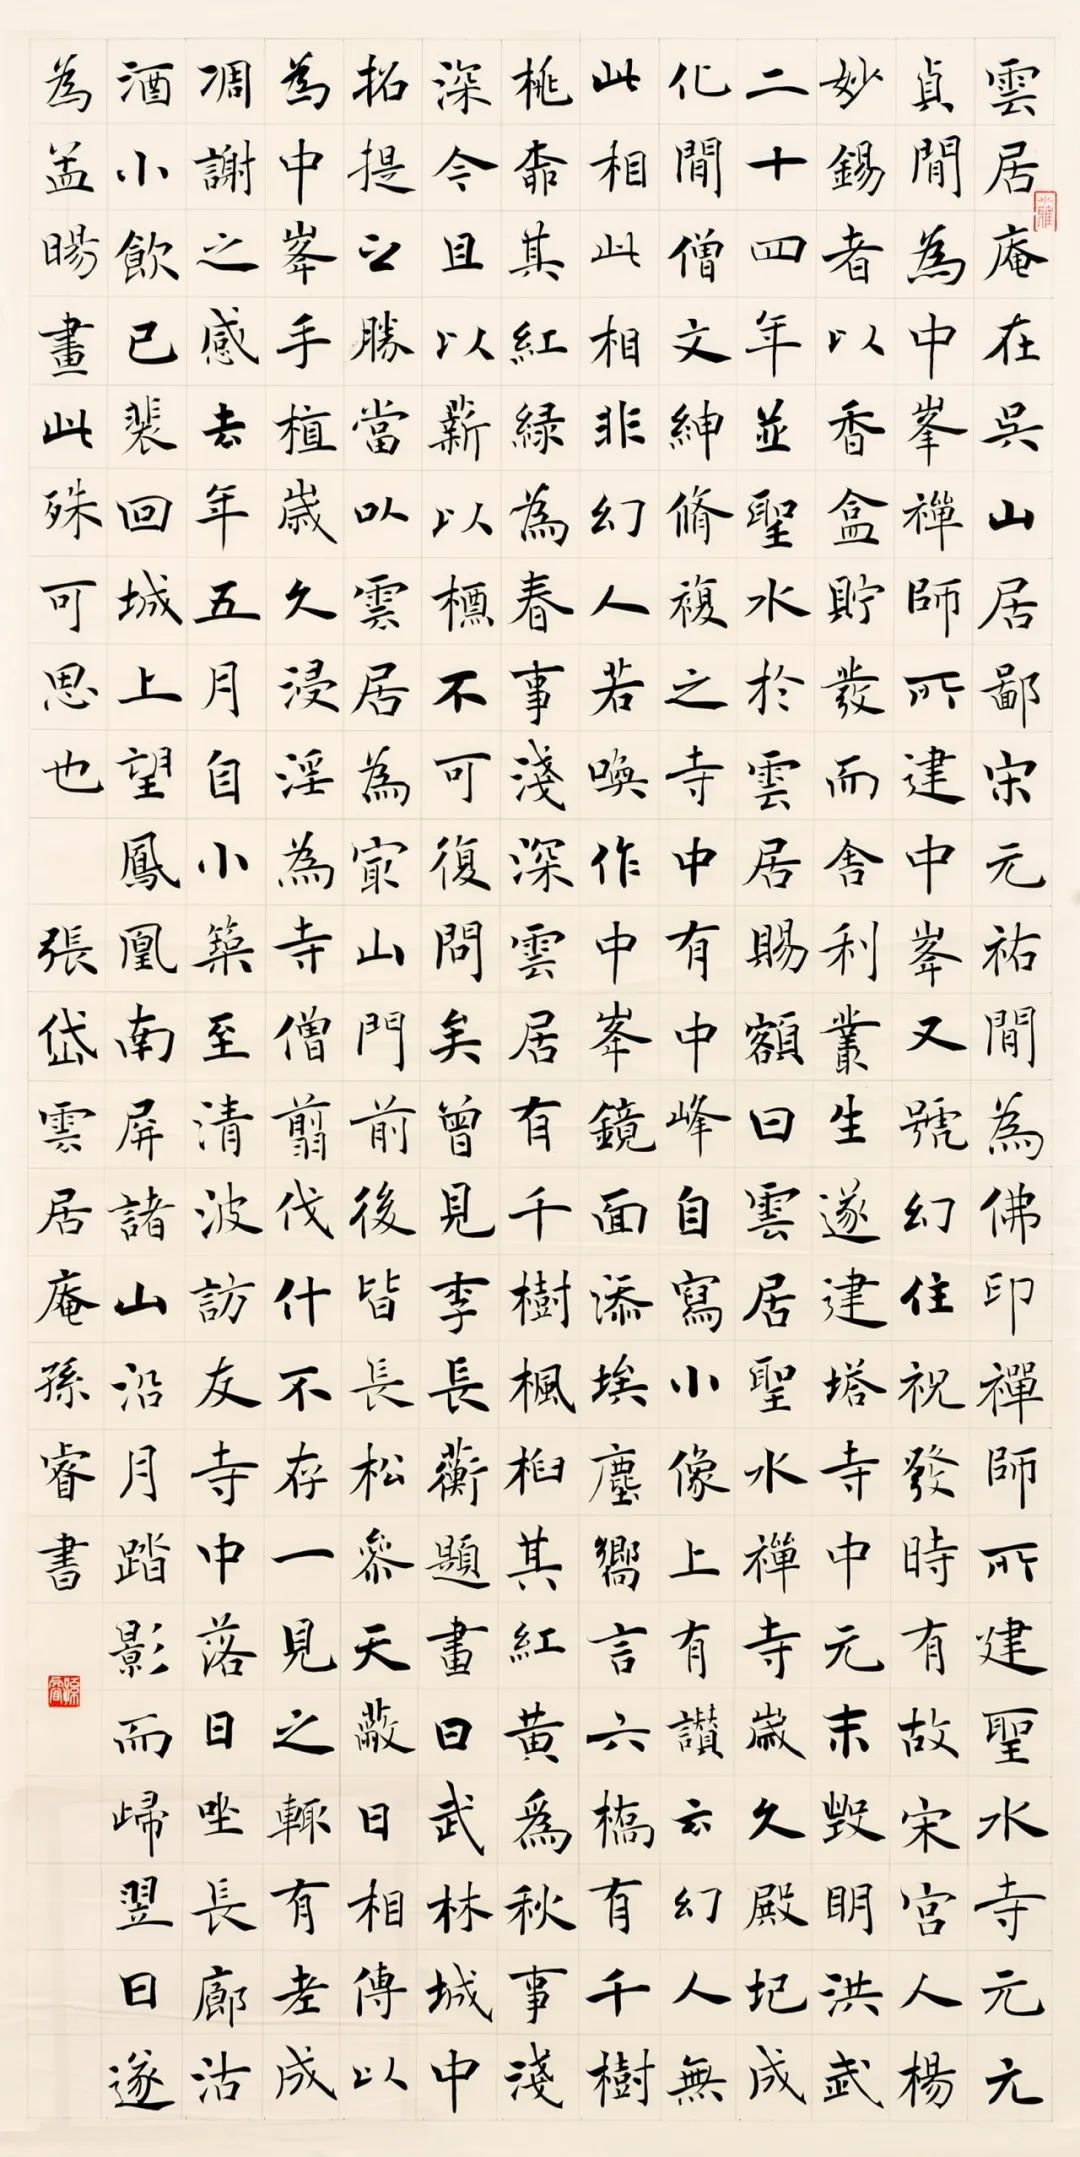 雲居庵在吳山居鄙宋元祐間為佛印禪師所建聖水寺元元
貞間為中峯禪師所建中峯又號幻住祝發時有故宋宮人楊
妙錫者以香盒貯發而舍利叢生遂建塔寺中元末毀明洪武
二十四年並聖水於雲居賜額曰雲居聖水禪寺歲久殿圮成
化間僧文紳脩複之寺中有中峰自寫小像上有讚云幻人無
此相此相非幻人若喚作中峯鏡面添埃塵嚮言六橋有千樹
桃柰其紅綠為春事淺深雲居有千樹楓桕其紅黃為秋事淺
深今且以薪以槱不可復問矣曾見李長蘅題畫曰武林城中
招提之勝當以雲居為冣山門前後皆長松參天蔽日相傳以
為中峯手植歲久浸淫為寺僧翦伐什不存一見之輒有老成
凋謝之感去年五月自小築至清波訪友寺中落日坐長廊沽
酒小飲已裴回城上望鳳凰南屏諸山沿月踏影而歸翌日遂
為孟暘畫此殊可思也 張岱雲居庵孫睿書
孫睿